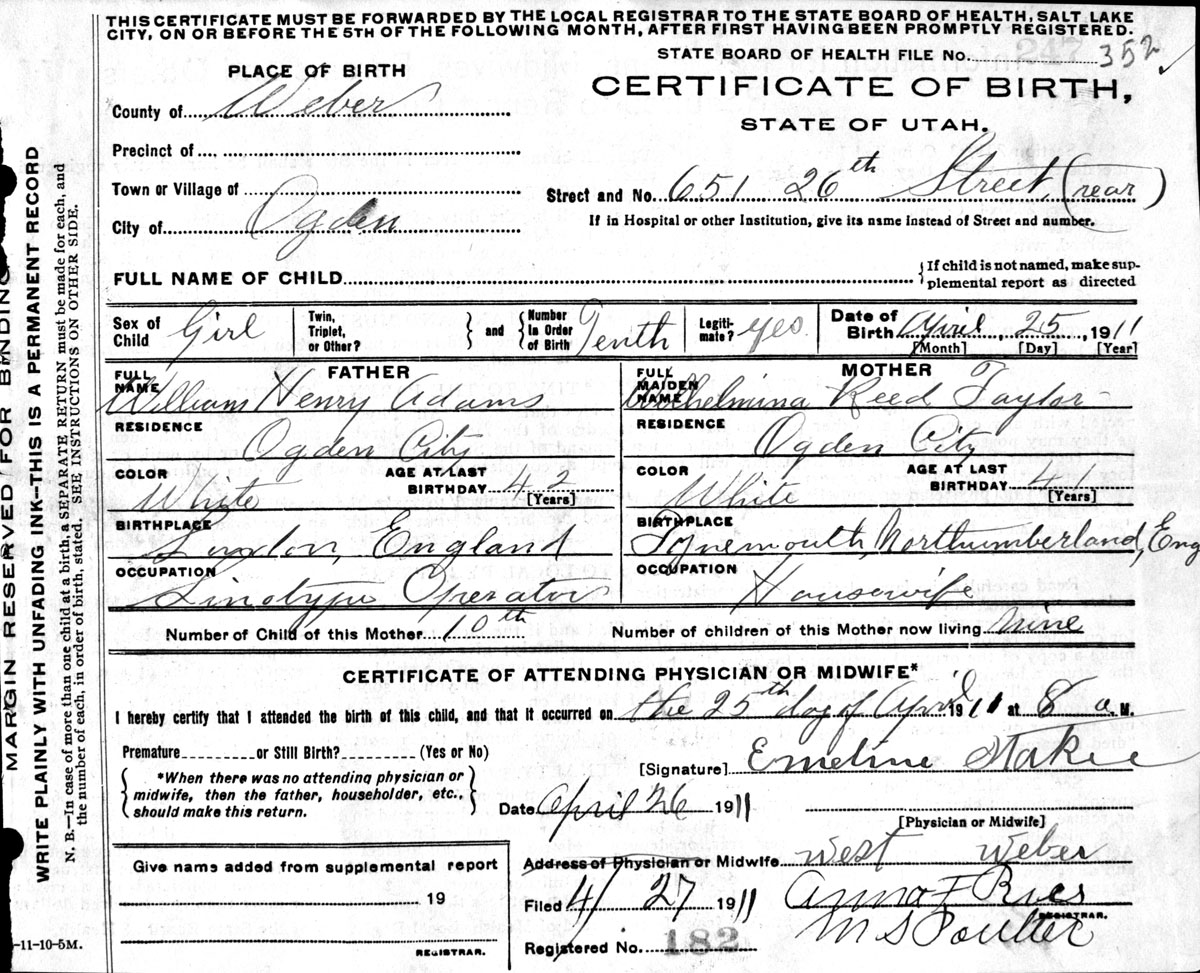 THIS CERTIFICATE MUST BE FORWARDED BY THE LOCAL REGISTRAR TO THE STATE BOARD OF HEALTH, SALT LAKE
CITY, ON OR BEFORE THE 5TH OF THE FOLLOWING MONTH, AFTER FIRST HAVING BEEN PROMPTLY REGISTERED.
STATE BOARD OF HEALTH FILE No. 352
PLACE OF BIRTH
CERTIFICATE OF BIRTH,
STATE OF UTAH.
County of Weber
Precinct of
Town or Village of
Street and No. 651 26th Street (rear)
City of Ogden
If in Hospital or other Institution, give its name instead of Street and number.
FULL NAME OF CHILD
{If child is not named, make sup-
plemental report as directed
Sex of Child Girl
Twin, Triplet, or Other? } and { Number in Order of Birth Tenth
Legiti-mate? yes
Date of Birth April 25, 1911
[Month] [Day] [Year]
FATHER
FULL NAME William Henry Adams
RESIDENCE
Ogden City
COLOR White
AGE AT LAST BIRTHDAY 42 [Years]
BIRTHPLACE
London, England
OCCUPATION
Linotype Operator
MOTHER
FULL MAIDEN NAME Wilhelmina Reed Taylor
RESIDENCE
Ogden City
COLOR White
AGE AT LAST BIRTHDAY 41 [Years]
BIRTHPLACE
Tynemouth Northumberland, Eng
OCCUPATION
Housewife
Number of Child of this Mother 10th
Number of children of this Mother now living Nine
CERTIFICATE OF ATTENDING PHYSICIAN OR MIDWIFE*
I hereby certify that I attended the birth of this child, and that it occurred on the 25th day of April 1911 at 8 a. M.
Premature or Still Birth? (Yes or No)
{ *When there was no attending physician or
midwife, then the father, householder, etc.,
should make this return. }
[Signature] Emeline Staker
Date April 26 1911
[Physician or Midwife]
Address of Physician or Midwife West Weber
Give name added from supplemental report
19
REGISTRAR.
Filed 4/27 1911
Anna F Rves
M S Poulter
REGISTRAR.
Registered No. 182
-11-10-5M.
MARGIN RESERVED FOR BINDING
WRITE PLAINLY WITH UNFADING INK–THIS IS A PERMANENT RECORD
N. B.—In case of more than one child at a birth, a SEPARATE RETURN must be made for each, and
the number of each, in order of birth, stated. SEE INSTRUCTIONS ON OTHER SIDE.